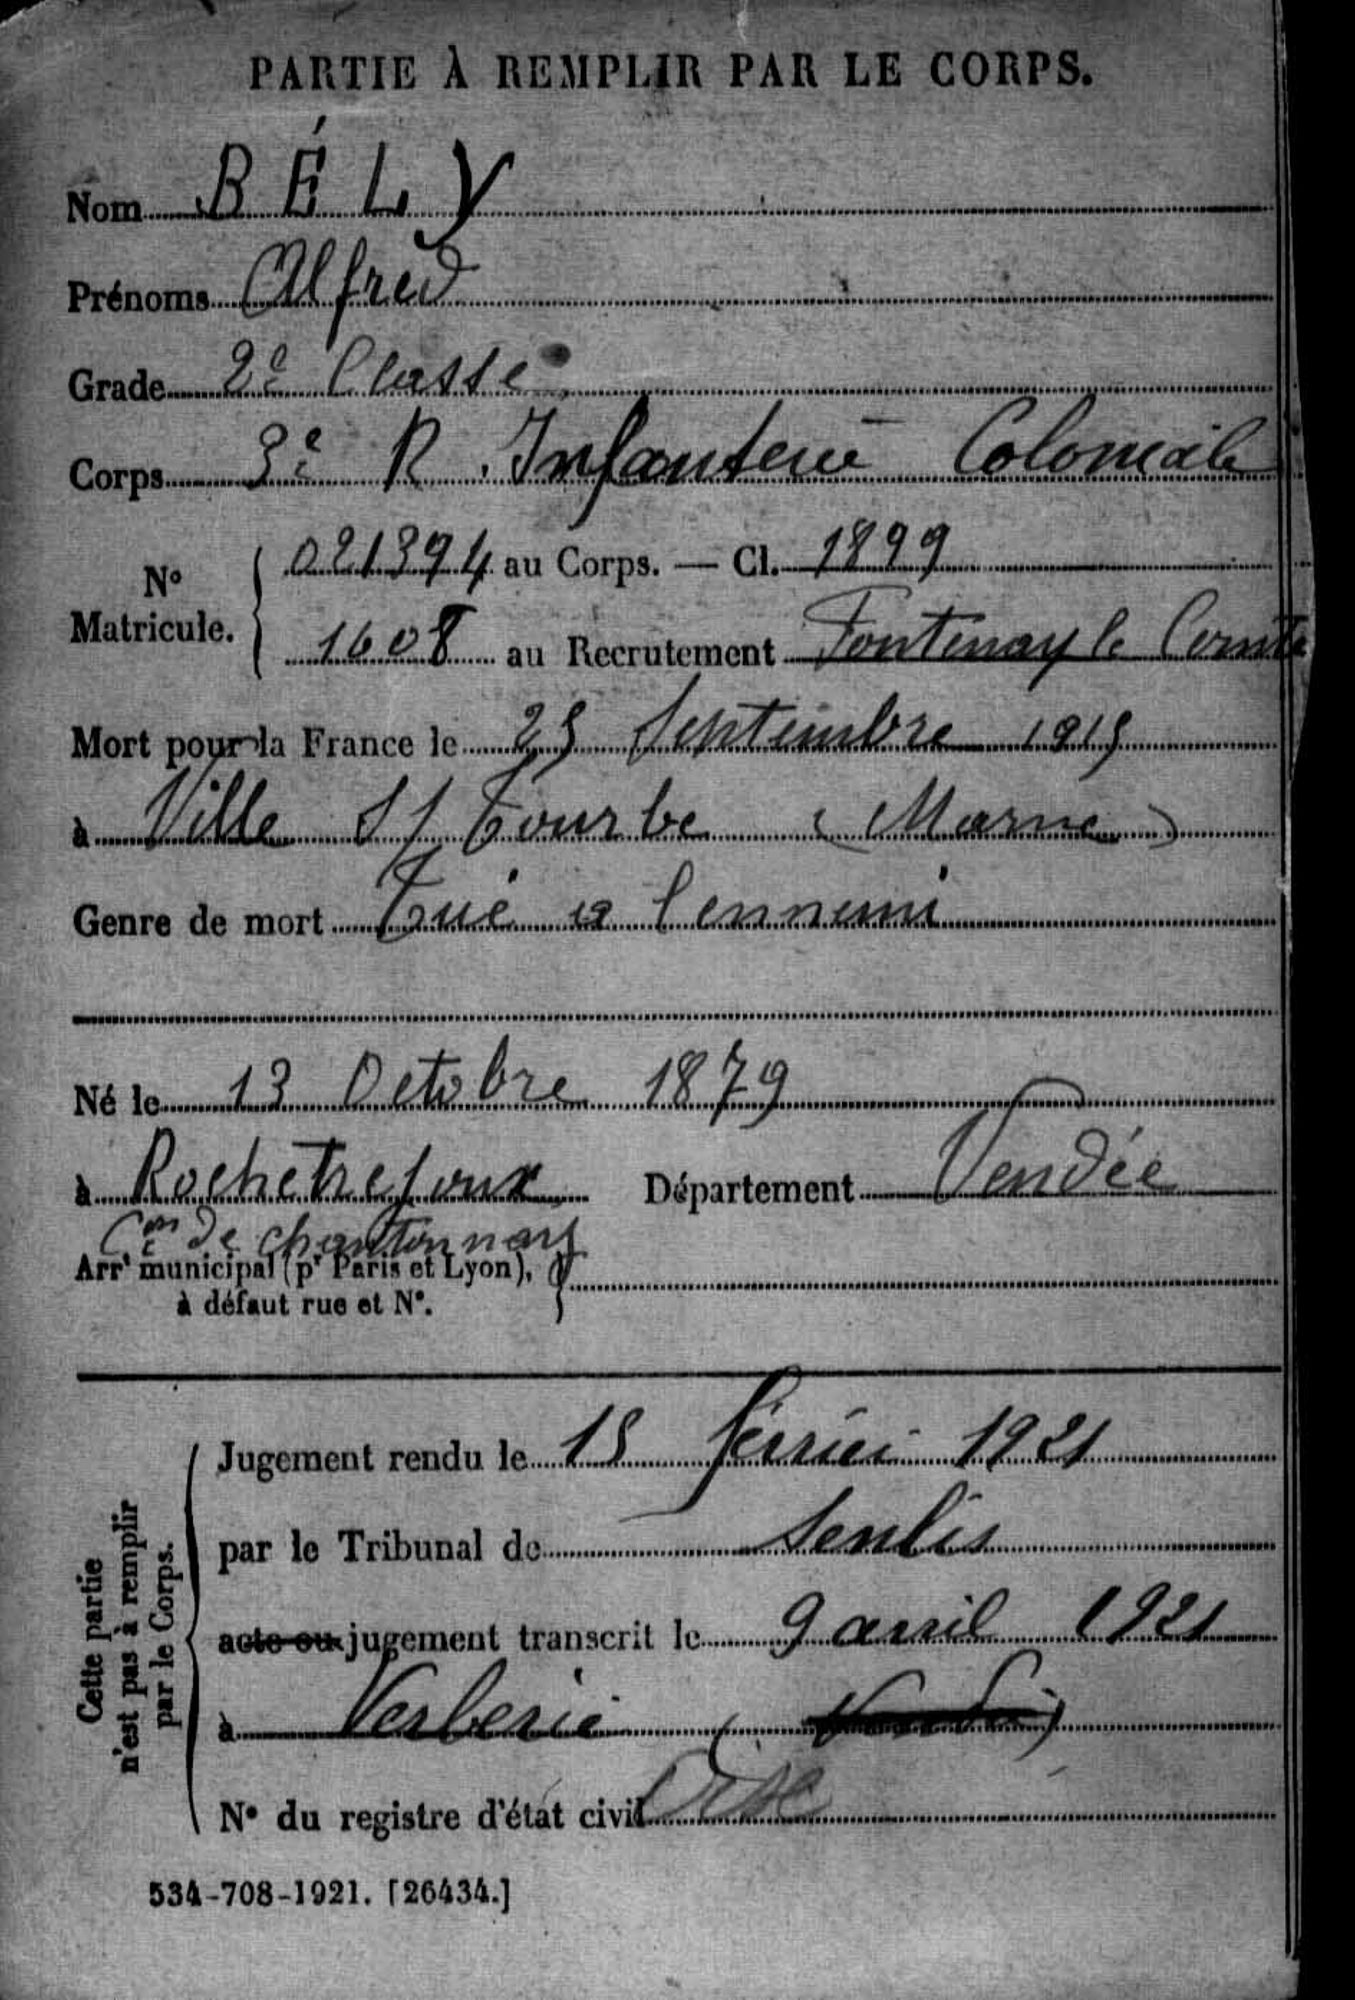 PARTIE À REMPLIR PAR LE CORPS.
Nom BÉLY
Prénoms Alfred
Grade 2e Classe
Corps 3e R Infanterie Coloniale
N° Matricule. 021394 au Corps. — Cl. 1899
1608 au Recrutement Fontenay le Comte
Mort pour la France le 25 Septembre 1915
à Ville S/ Tourbe (Marne)
Genre de mort Tué à l'ennemi
Né le 13 Octobre 1879
à Rochetrejoux Département Vendée
Con de chantonnay
Arrt municipal (pr Paris et Lyon),
à défaut rue et N°.
Cette partie n'est pas à remplir par le Corps.
Jugement rendu le 15 février 1921
par le Tribunal de Senlis
acte ou jugement transcrit le 9 avril 1921
à Verberie (Vendée)
Oise
N° du registre d'état civil
534-708-1921. [26434.]